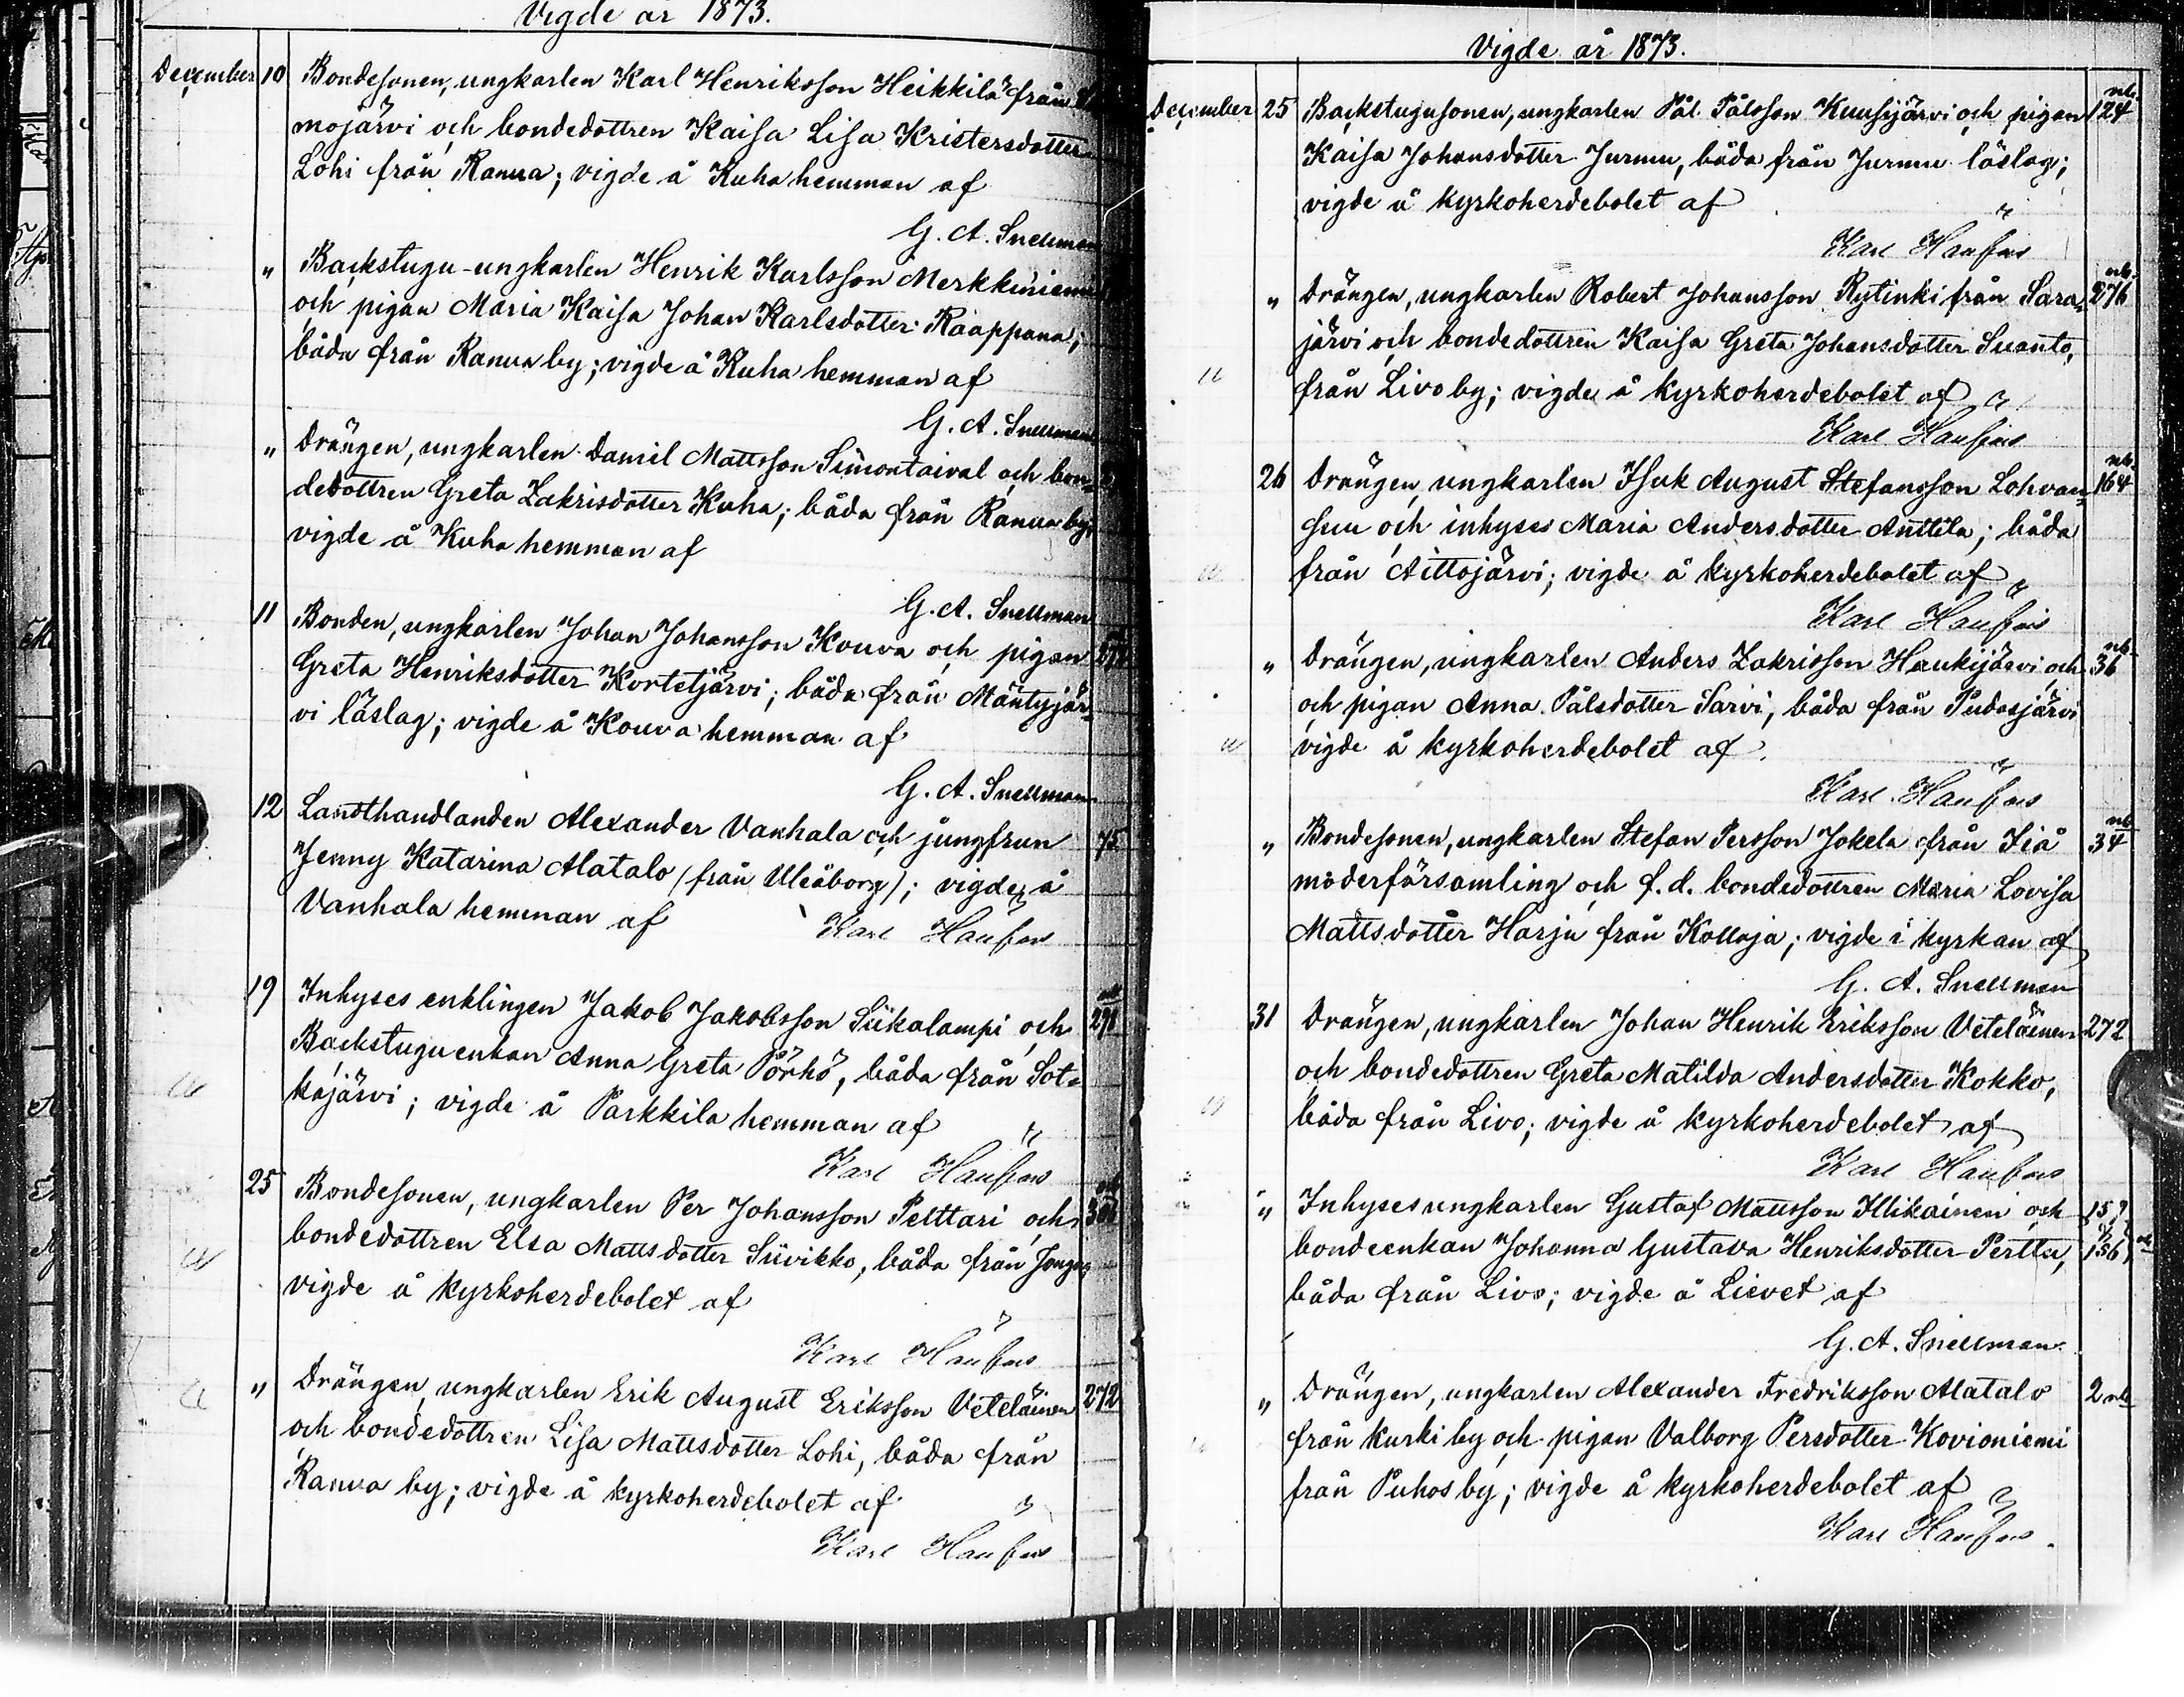 Vigde år 1873.
December 10 Bondesonen, ungkarlen Karl Henriksson Heikkilä från
mojärvi och bondedottren Kaisa Lisa Kristersdotter
Lohi från Ranua; vigde å Kuha hemman af
G. A. Snellman
" Backstugu-ungkarlen Henrik Karlsson Merkkiniemi
och pigan Maria Kaisa Johan Karlsdotter Kaappana;
båda från Ranua by; vigde å Kuha hemman af
G. A. Snellman
" Drängen, ungkarlen Daniel Mattsson Simontaival och bon-
dedottren Greta Zakrisdotter Kuha; båda från Ranua by;
vigde å Kuha hemman af
G. A. Snellman
11 Bonden, ungkarlen Johan Johansson Kouva och pigan
Greta Henriksdotter Kortetjärvi; båda från Mäntyjär-
vi läslag; vigde å Kouva hemman af
G. A. Snellman
12 Landthandlanden Alexander Vanhala och jungfrun 75
Jenny Katarina Alatalo (från Uleåborg); vigde å
Vanhala hemman af
Karl
19 Inhyses enklingen Jakob Jakobsson Siikalampi och
Backstuguenkan Anna Greta Pörhö, båda från Sot-
kajärvi; vigde å Parkkila hemman af
Karl
25 Bondesonen, ungkarlen Per Johansson Pelttari och
bondedottren Elsa Mattsdotter Siivikko, båda från
vigde å kyrkoherdebolet af
Karl
" Drängen, ungkarlen Erik August Eriksson Veteläinen 272
och bondedottren Lisa Mattsdotter Lohi, båda från
Ranua by; vigde å kyrkoherdebolet af
Karl
Vigde år 1873.
December 25 Backstugusonen, ungkarlen Pål Pålsson Kuusijärvi och pigan nb. 124
Kaisa Johansdotter Jurmu, båda från Jurmu läslag;
vigde å kyrkoherdebolet af
Karl
" Drängen, ungkarlen Robert Johansson Rytinki från Sara- nb. 276
järvi och bondedottren Kaisa Greta Johansdotter Suanto,
från Livo by; vigde å kyrkoherdebolet af
Karl
26 Drängen, ungkarlen Isak August Stefansson Lohvan- nb. 164
suu och inhyses Maria Andersdotter Anttila; båda
från Aittojärvi; vigde å kyrkoherdebolet af
Karl
" Drängen, ungkarlen Anders Zakrisson Haukijärvi och nb. 36
och pigan Anna Pålsdotter Sarvi, båda från Pudasjärvi
vigde å kyrkoherdebolet af
Karl
" Bondesonen, ungkarlen Stefan Persson Jokela från Iiå nb 34
moderförsamling och f.d. bondedottren Maria Lovisa
Mattsdotter Harju från Kollaja; vigde i kyrkan af
G. A. Snellman
31 Drängen, ungkarlen Johan Henrik Eriksson Veteläinen 272
och bondedottren Greta Matilda Andersdotter Kokko,
båda från Livo; vigde å kyrkoherdebolet af
Karl
" Inhysesungkarlen Gustaf Mattsson Illikainen och
bondeenkan Johanna Gustava Henriksdotter Perttu, 156
båda från Livo; vigde å Lievet af
G. A. Snellman
" Drängen, ungkarlen Alexander Fredriksson Alatalo 2 nb
från Kurki by och pigan Valborg Persdotter Kovioniemi
från Puhos by; vigde å kyrkoherdebolet af
Karl